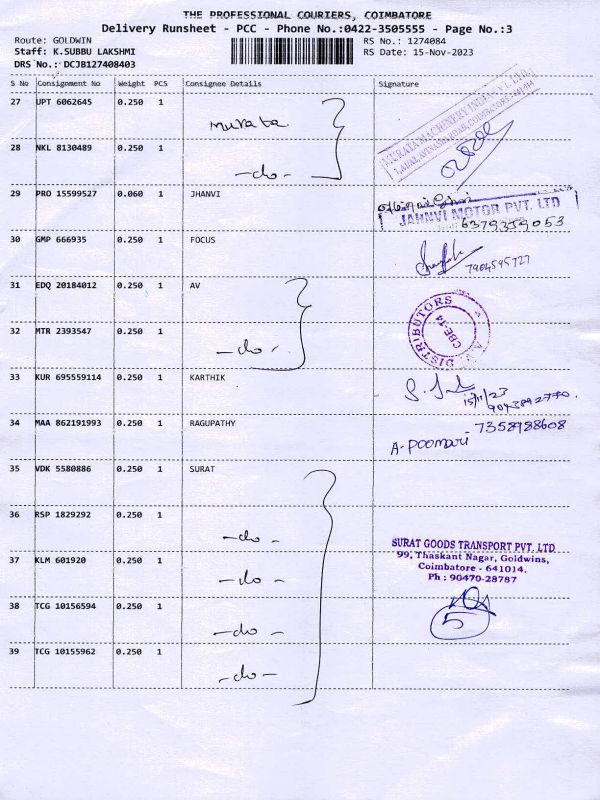 THE PROFESSIONAL COURIERS, COIMBATORE
Delivery Runsheet - PCC - Phone No.:0422-3505555 - Page No.:3
Route: GOLDWIN
RS No.: 1274084
Staff: K.SUBBU LAKSHMI
RS Date: 15-Nov-2023
DRS No.: DCJB127408403
S No Consignment No Weight PCS Consignee Details Signature
27 UPT 6062645 0.250 1 murata
28 NKL 8130489 0.250 1 -do-
29 PRO 15599527 0.060 1 JHANVI
JAHNVI MOTOR PVT. LTD
6379359053
30 GMP 666935 0.250 1 FOCUS
7904595727
31 EDQ 20184012 0.250 1 AV
32 MTR 2393547 0.250 1 -do-
AV DISTRIBUTORS
CBE-14
33 KUR 695559114 0.250 1 KARTHIK
15/11/23
9043892770.
34 MAA 862191993 0.250 1 RAGUPATHY
-7358988608
A-Poomari
35 VDK 5580886 0.250 1 SURAT
36 RSP 1829292 0.250 1 -do-
37 KLM 601920 0.250 1 -do-
38 TCG 10156594 0.250 1 -do-
39 TCG 10155962 0.250 1 -do-
SURAT GOODS TRANSPORT PVT. LTD
99, Thaskant Nagar, Goldwins,
Coimbatore - 641014.
Ph : 90470-28787
5